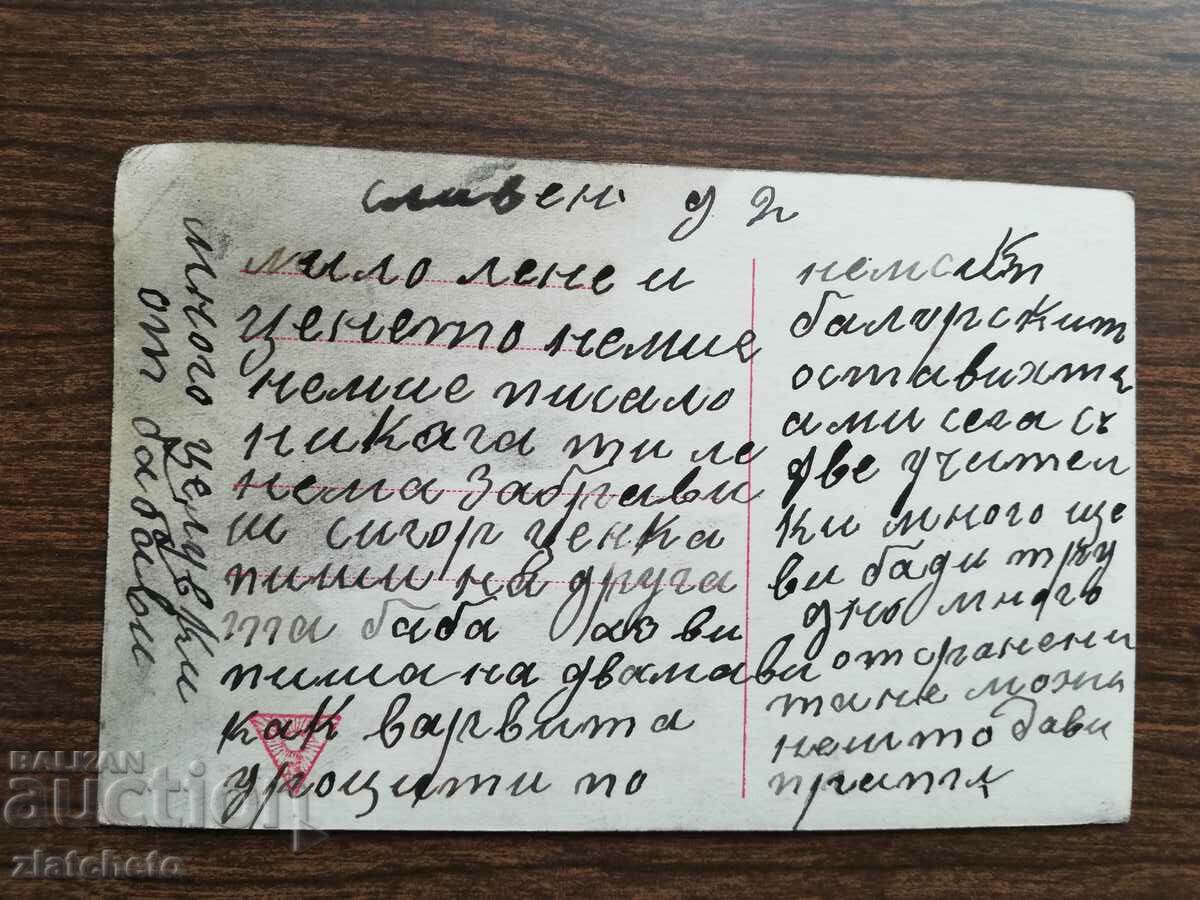 сливен. д 2
мило лене и
ценето немие
немие писало
никага ти ле
нема забрави
ш сигор ценка
пиши на друга
та баба аз ви
пиша на двамави
как варвита
уроцити по
немски
балгорскит
оставихти
ами сега съ
две учител
ки много ще
ви бади тру
дно много
от сганени
ти не можи
нешто бави
много целувки
от бабави
BALKAN
auction
zlatcheto